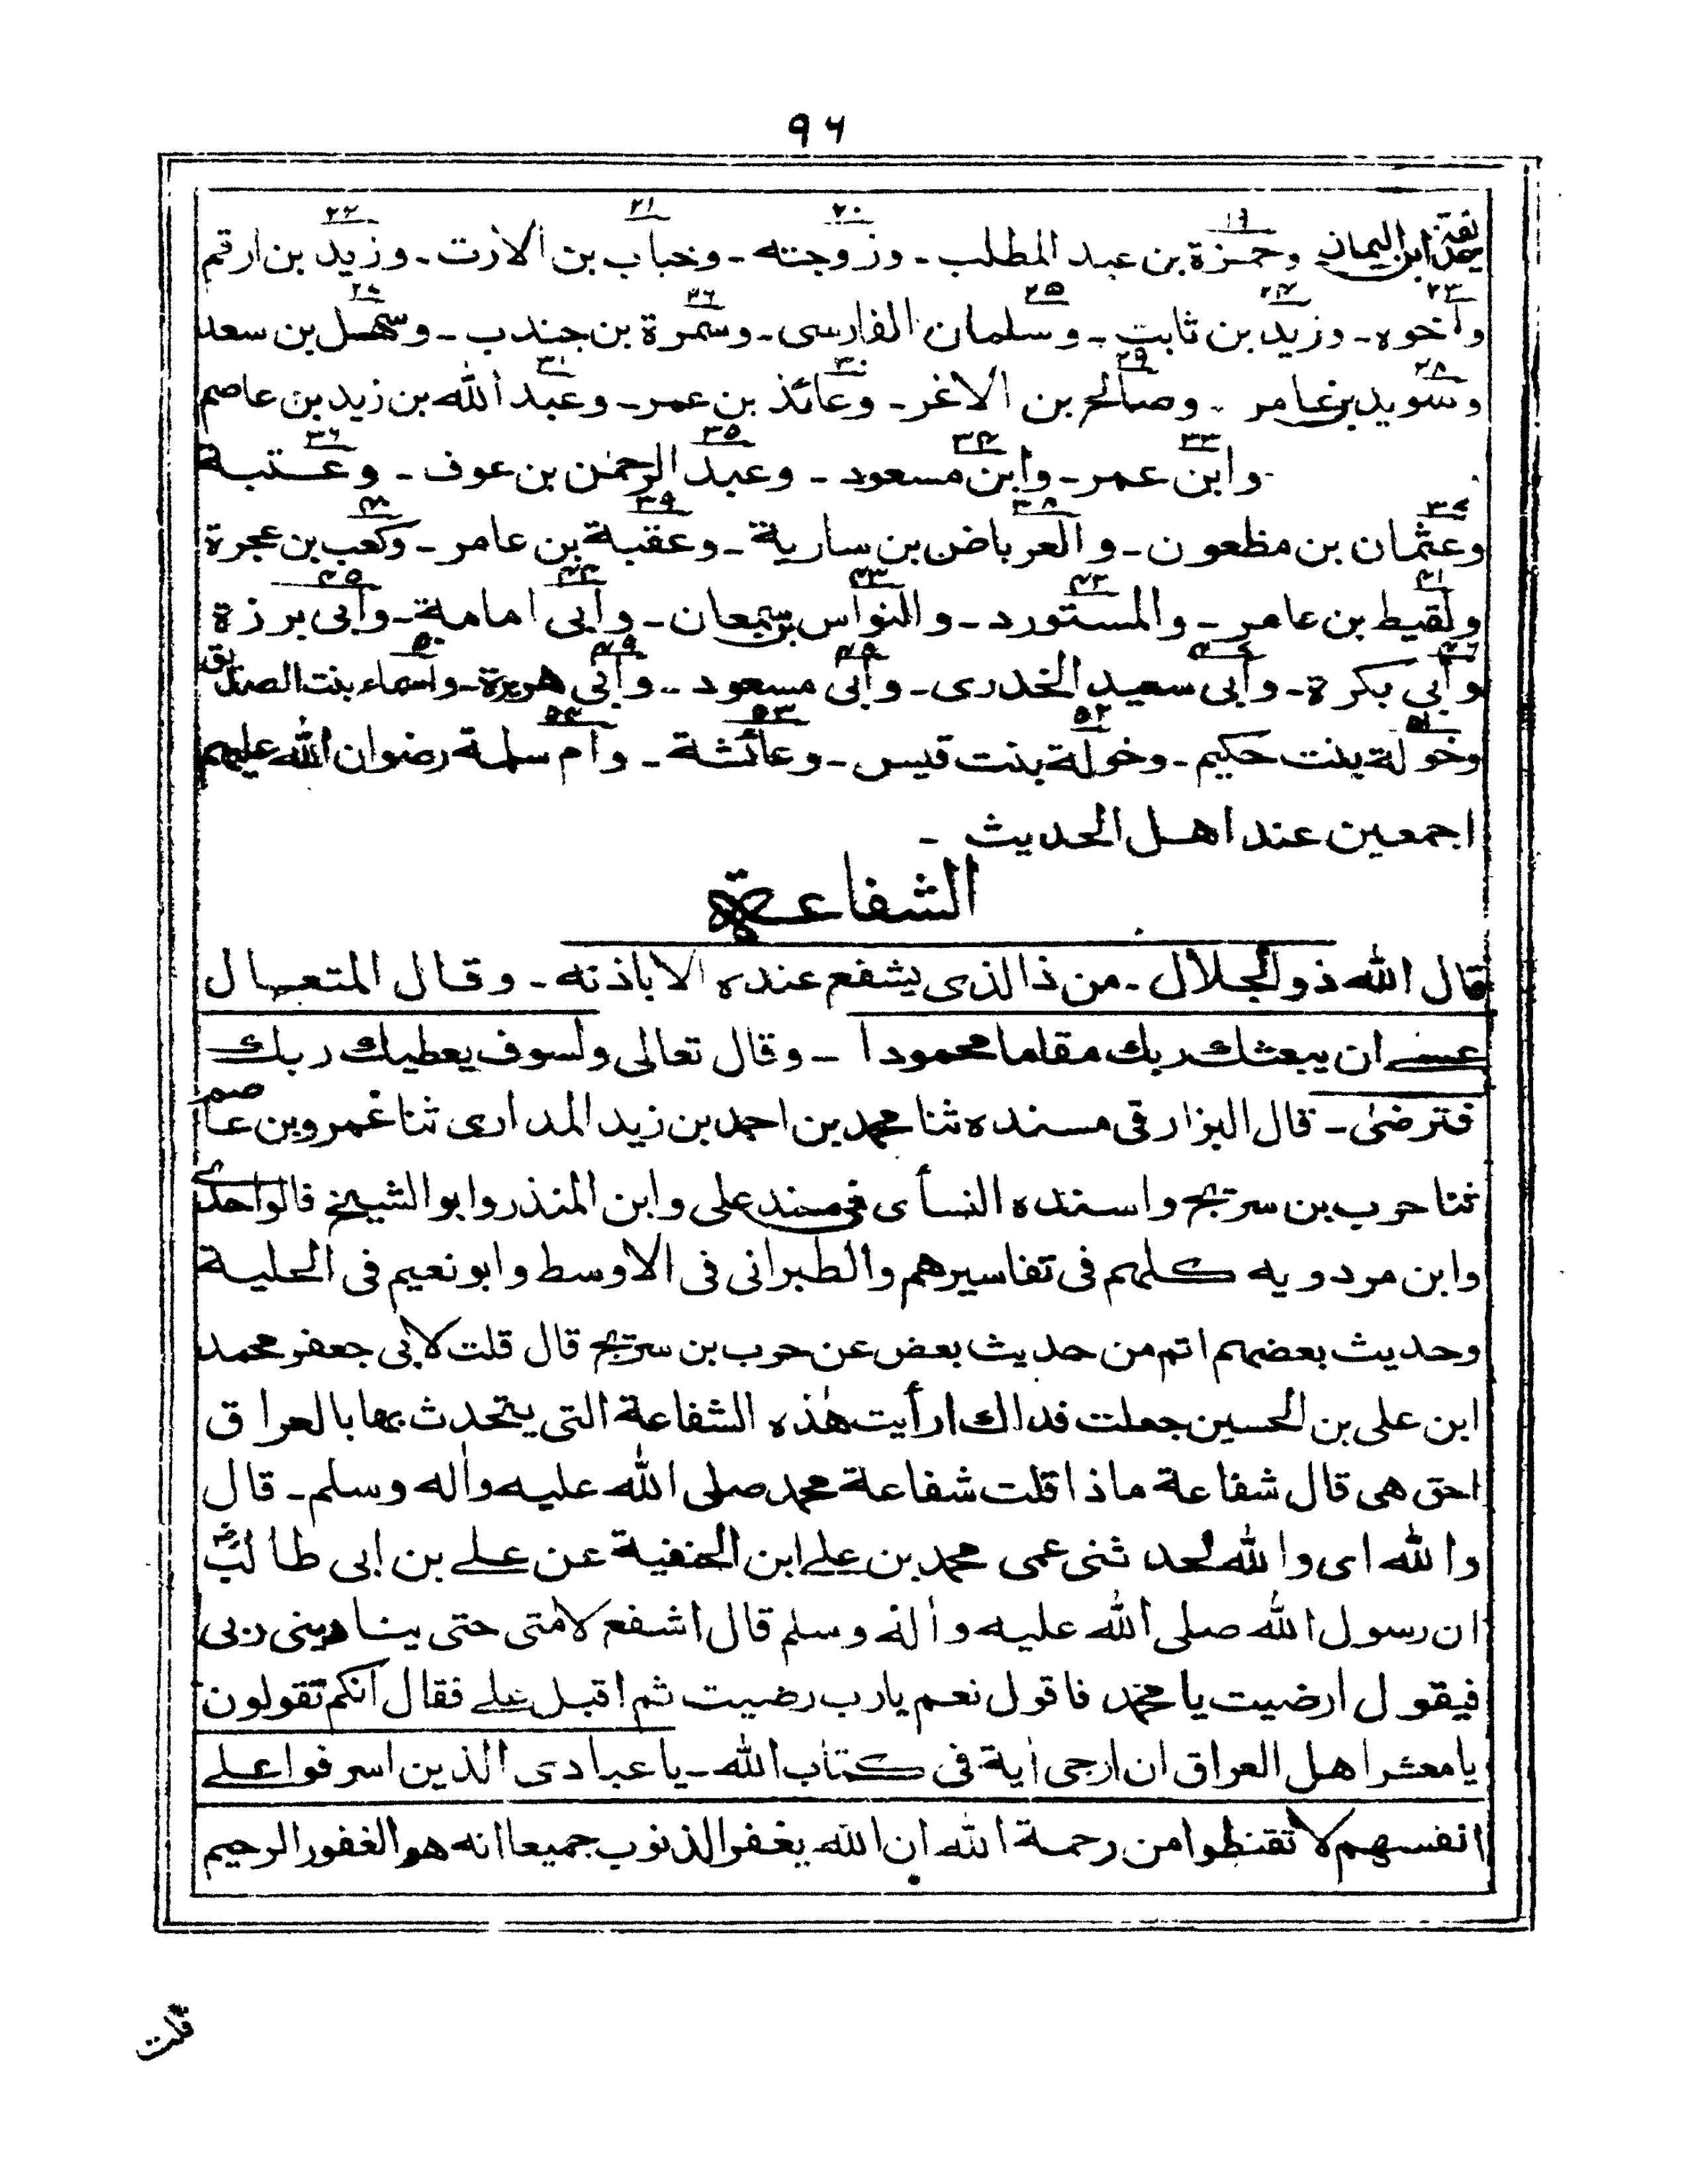 ٩٦
حذيفة ابن اليمان وحمزة بن عبد المطلب - وزوجته - وخباب بن الارت - وزيد بن ارقم
واخوه - وزيد بن ثابت - وسلمان الفارسى - وسمرة بن جندب - وسهل بن سعد
وسويد بن عامر - وصالح بن الاغر - وعائذ بن عمر - وعبد الله بن زيد بن عاصم
وابن عمر - وابن مسعود - وعبد الرحمٰن بن عوف - وعتبة
وعثمان بن مظعون - والعرباض بن سارية - وعقبة بن عامر - وكعب بن عجرة
ولقيط بن عامر - والمستورد - والنواس بن سمعان - وأبى امامة - وأبى برزة
وأبى بكرة - وأبى سعيد الخدرى - وأبى مسعود - وأبى هريرة - واسماء بنت الصديق
وخولة بنت حكيم - وخولة بنت قيس - وعائشة - وام سلمة رضوان الله عليهم
اجمعين عند اهل الحديث -
الشفاعة
قال الله ذو الجلال - من ذا الذى يشفع عنده الا باذنه - وقال المتعال
عسے ان يبعثك ربك مقاما محمودا - وقال تعالى ولسوف يعطيك ربك
فترضىٰ - قال البزار فى مسنده ثنا محمد بن احمد بن زيد المدارى ثنا عمرو بن عاصم
ثنا حرب بن سريج واسنده النسأى فى مسند على وابن المنذر وابو الشيخ فالواحدے
وابن مردويه كلهم فى تفاسيرهم والطبرانى فى الاوسط وابو نعيم فى الحلية
وحديث بعضهم اتم من حديث بعض عن حرب بن سريج قال قلت لابى جعفر محمد
ابن على بن الحسين جعلت فداك ارأيت هٰذه الشفاعة التى يتحدث بها بالعراق
احق هى قال شفاعة ماذا قلت شفاعة محمد صلى الله عليه واٰله وسلم - قال
والله اى والله لحدثنى عمى محمد بن علے ابن الحنفية عن علے بن ابى طالبؓ
ان رسول الله صلى الله عليه واٰله وسلم قال اشفع لامتى حتى ينادينى ربى
فيقول ارضيت يا محمد فاقول نعم يارب رضيت ثم اقبل علے فقال انكم تقولون
يا معشر اهل العراق ان ارجى اٰية فى كتاب الله - يا عبادى الذين اسرفوا علے
انفسهم لا تقنطوا من رحمة الله ان الله يغفر الذنوب جميعا انه هو الغفور الرحيم
قلت